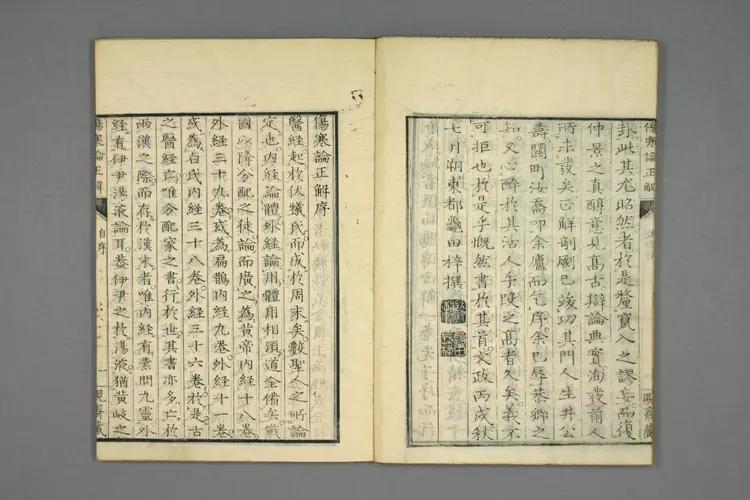 卦此其尤昭然者於是釐竄入之謬妄而復
仲景之真醇意見髙古辯論典實洵發前人
所未發矣正解剞劂已竣功其門人生井公
壽關町汝喬叩余廬而乞序余已辱恭卿之
知又心醉於其沽人手段之髙者久矣義不
可拒也於是乎慨然書於其首文政丙戌秋
七月朔東都龜田梓撰
傷寒論正解序
醫經起於伏犧氏而成於周末矣數聖人之所論
定也内經論體外經論用體用相須道全備矣戰
國以降分配之徒論而廣之為黄帝内經十八卷
外經三十九卷或為扁鵲内經九卷外經十一卷
或為白氏内經三十八卷外經三十六卷於是古
之醫經真唯分配家之書行於世其書亦多亡於
兩漢之際而存於漢末者唯内經有素問九靈外
經有伊尹湯液論耳蓋伊尹之於湯液猶黄岐之
傷寒論正解
自序